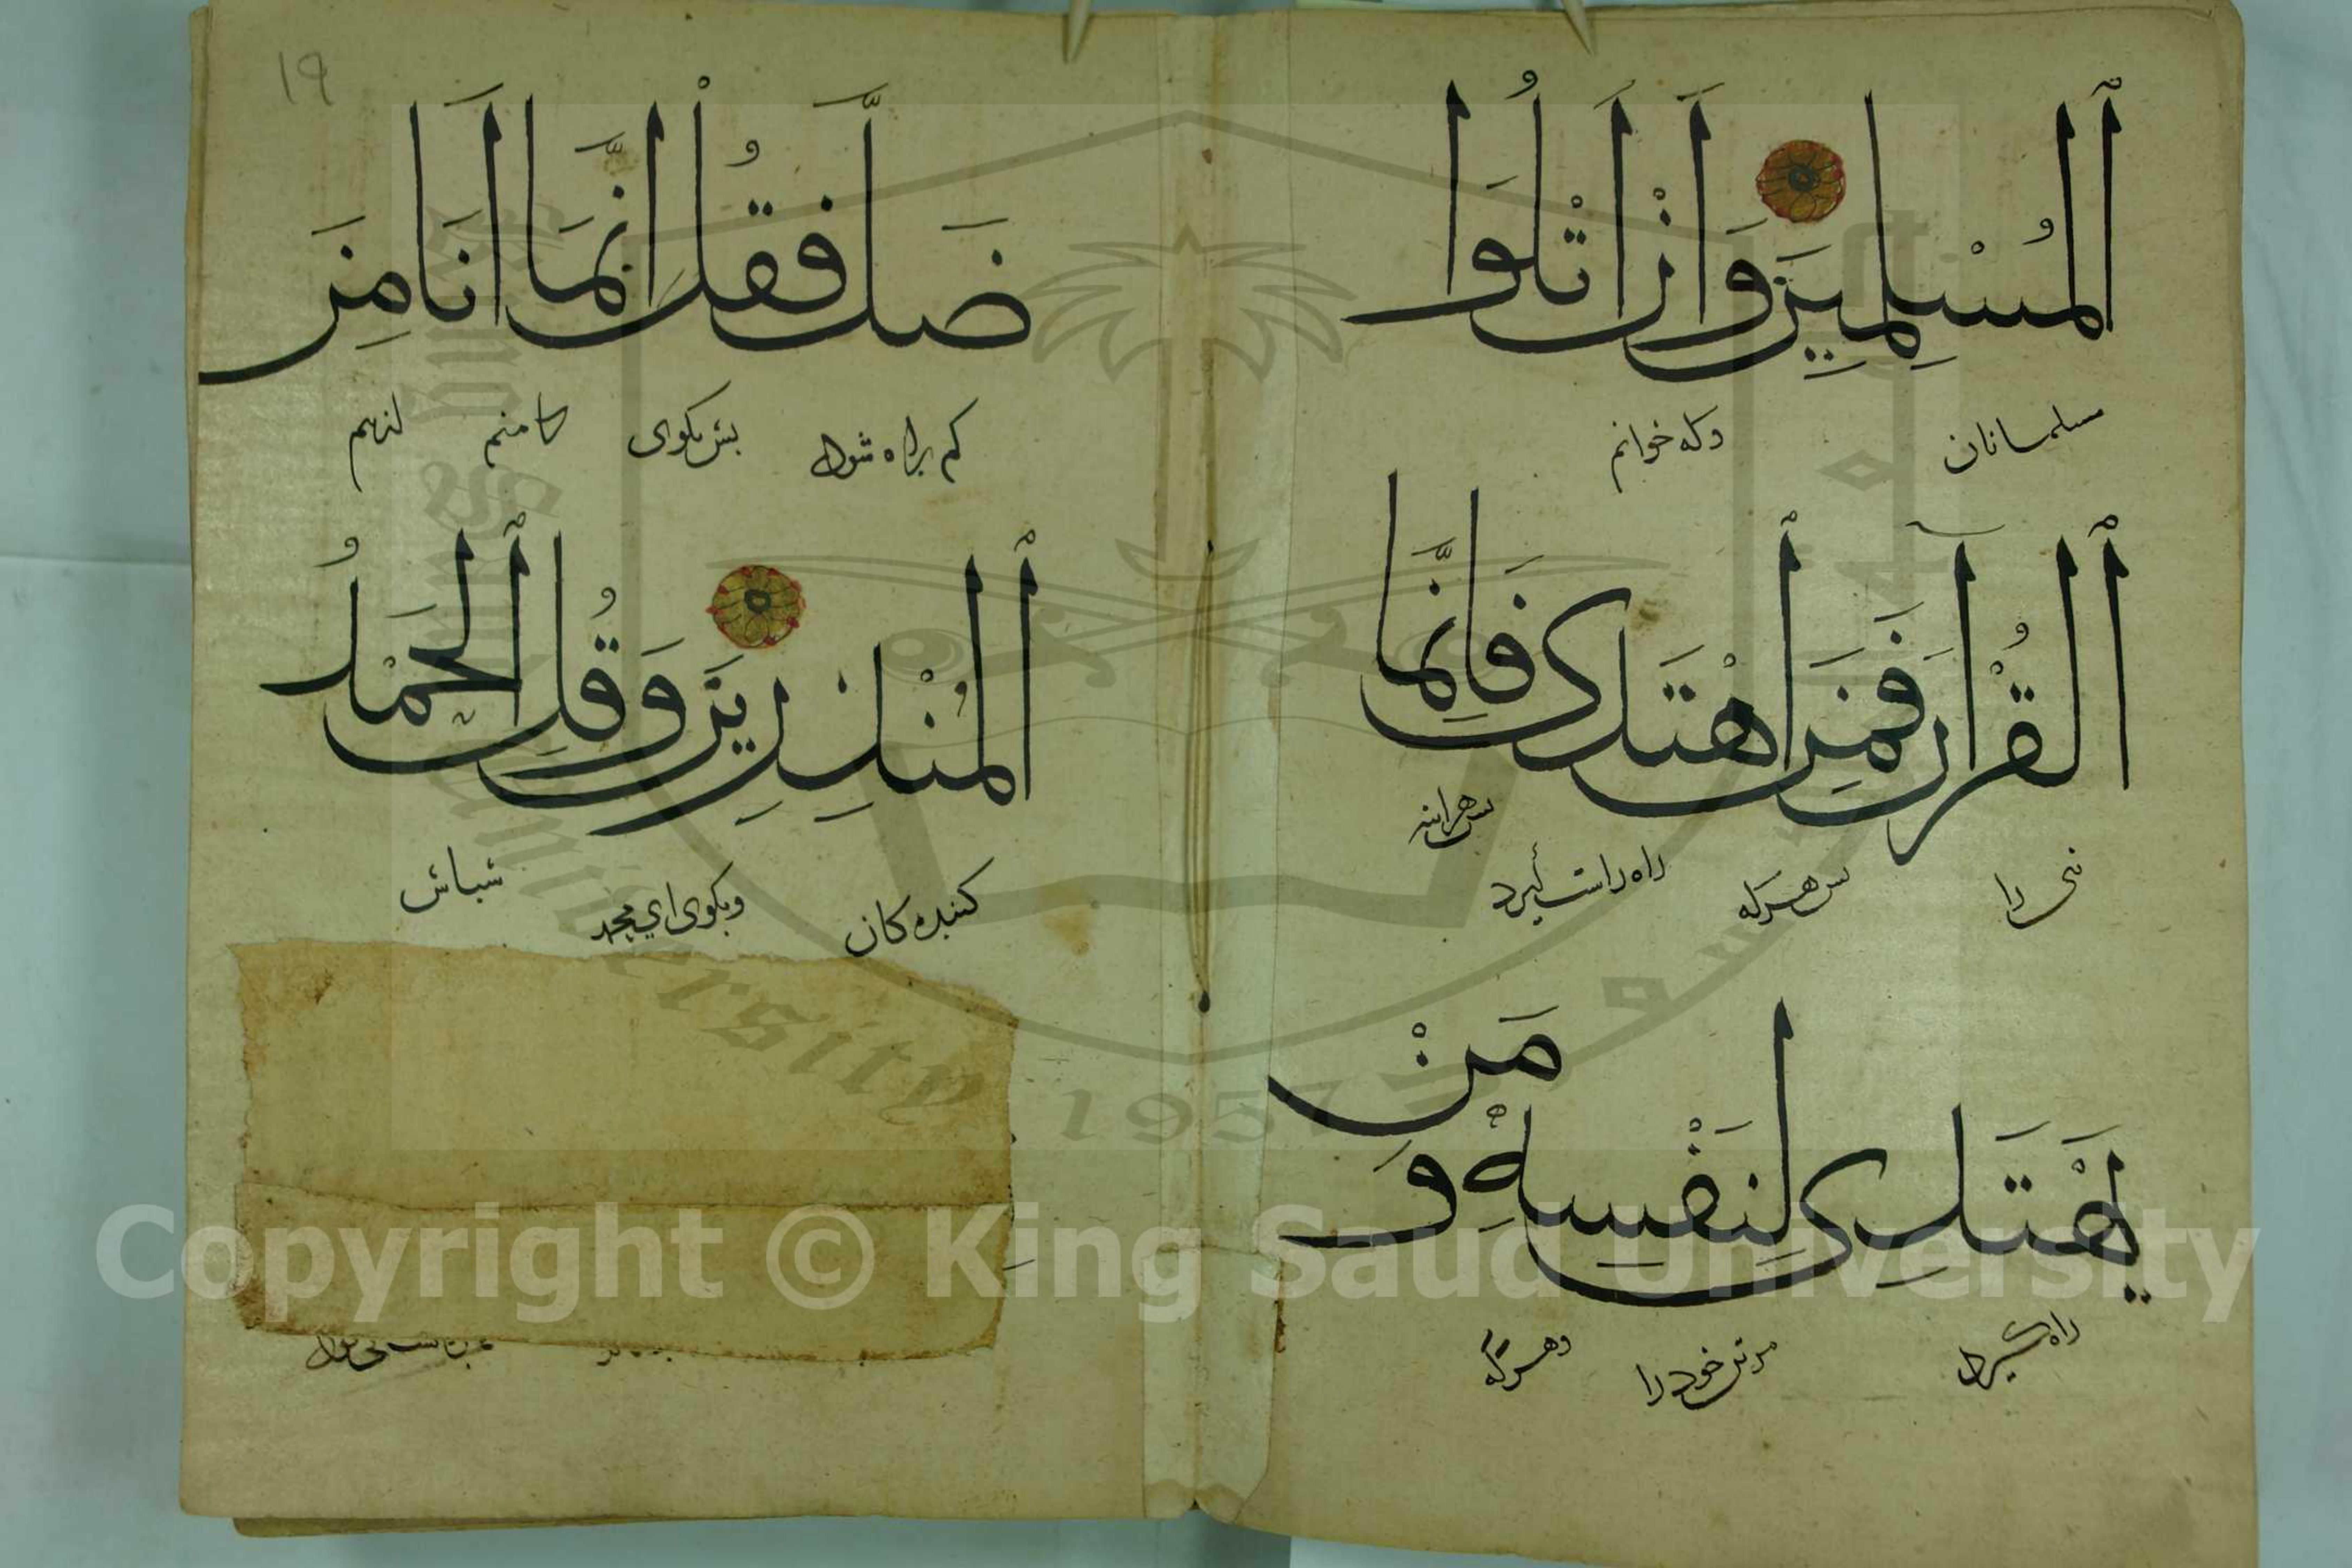 ٱلْمُسْلِمِينَ وَأَنْ أَتْلُوَا
مسلمانان وکه خوانم
ٱلْقُرْآنَ فَمَنِ ٱهْتَدَى فَإِنَّمَا
نبی را پس هرکه راه راست گیرد پس هراینه
يَهْتَدِى لِنَفْسِهِ وَمَنْ
راه گیرد مر تن خود را وهرکه
١٩
ضَلَّ فَقُلْ إِنَّمَا أَنَا مِنَ
کم راه شود پس بکوی که منم
ٱلْمُنْذِرِينَ وَقُلِ ٱلْحَمْدُ
کننده کان وبکوی ای محمد سباس
King Saud University
1957
Copyright © King Saud University